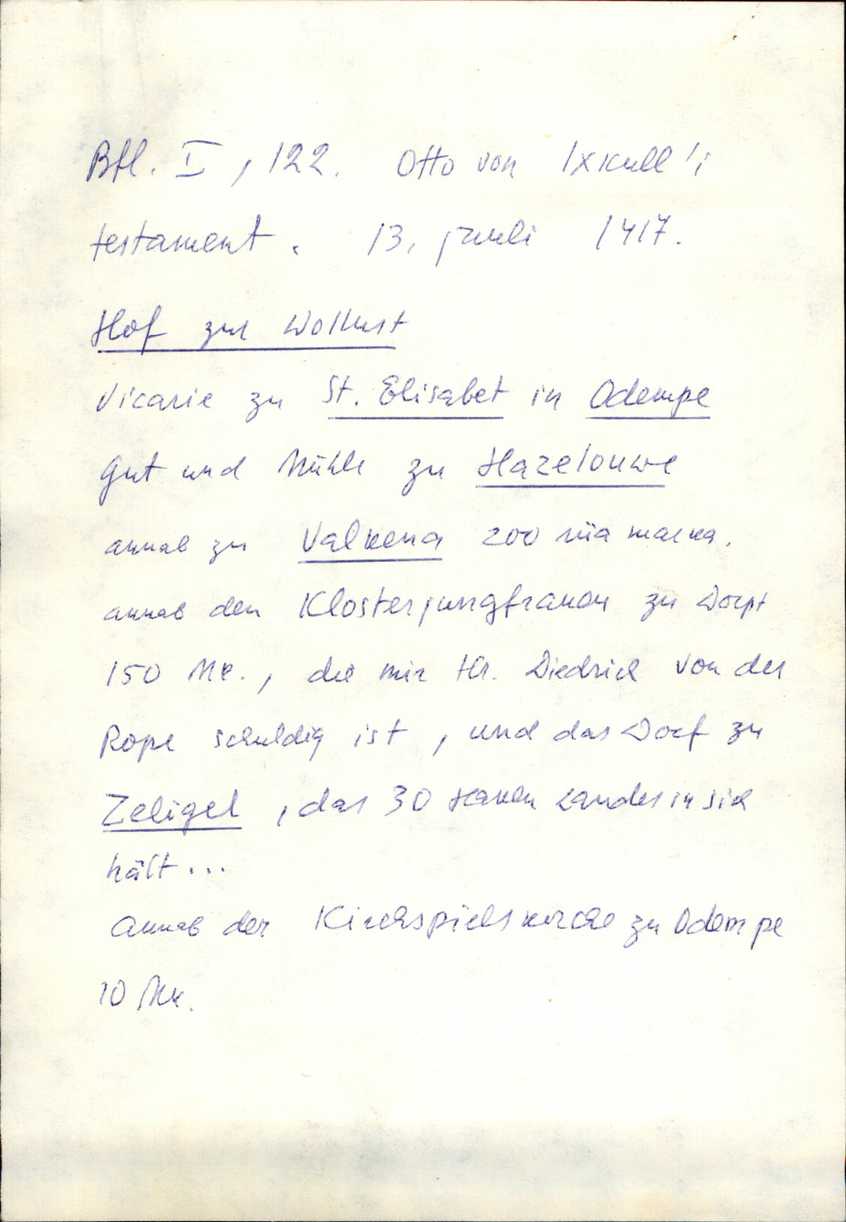 Bfl. I, 122. Otto von Ixkull'i
testament. 13. juuli 1417.
Hof zur Wollust
Vicarie zu St. Elisabet in Odempe
Gut und Mühle zu Hazelouwe
annab zu Valkena 200 riia marka.
annab den Klosterjungfrauen zu Dorpt
150 Mk., die mir Hr. Diedrich von der
Rope schuldig ist, und das Dorf zu
Zeligel, das 30 Haken Landes in sich
hält...
Annab der Kirchspielskirche zu Odempe
10 Mk.